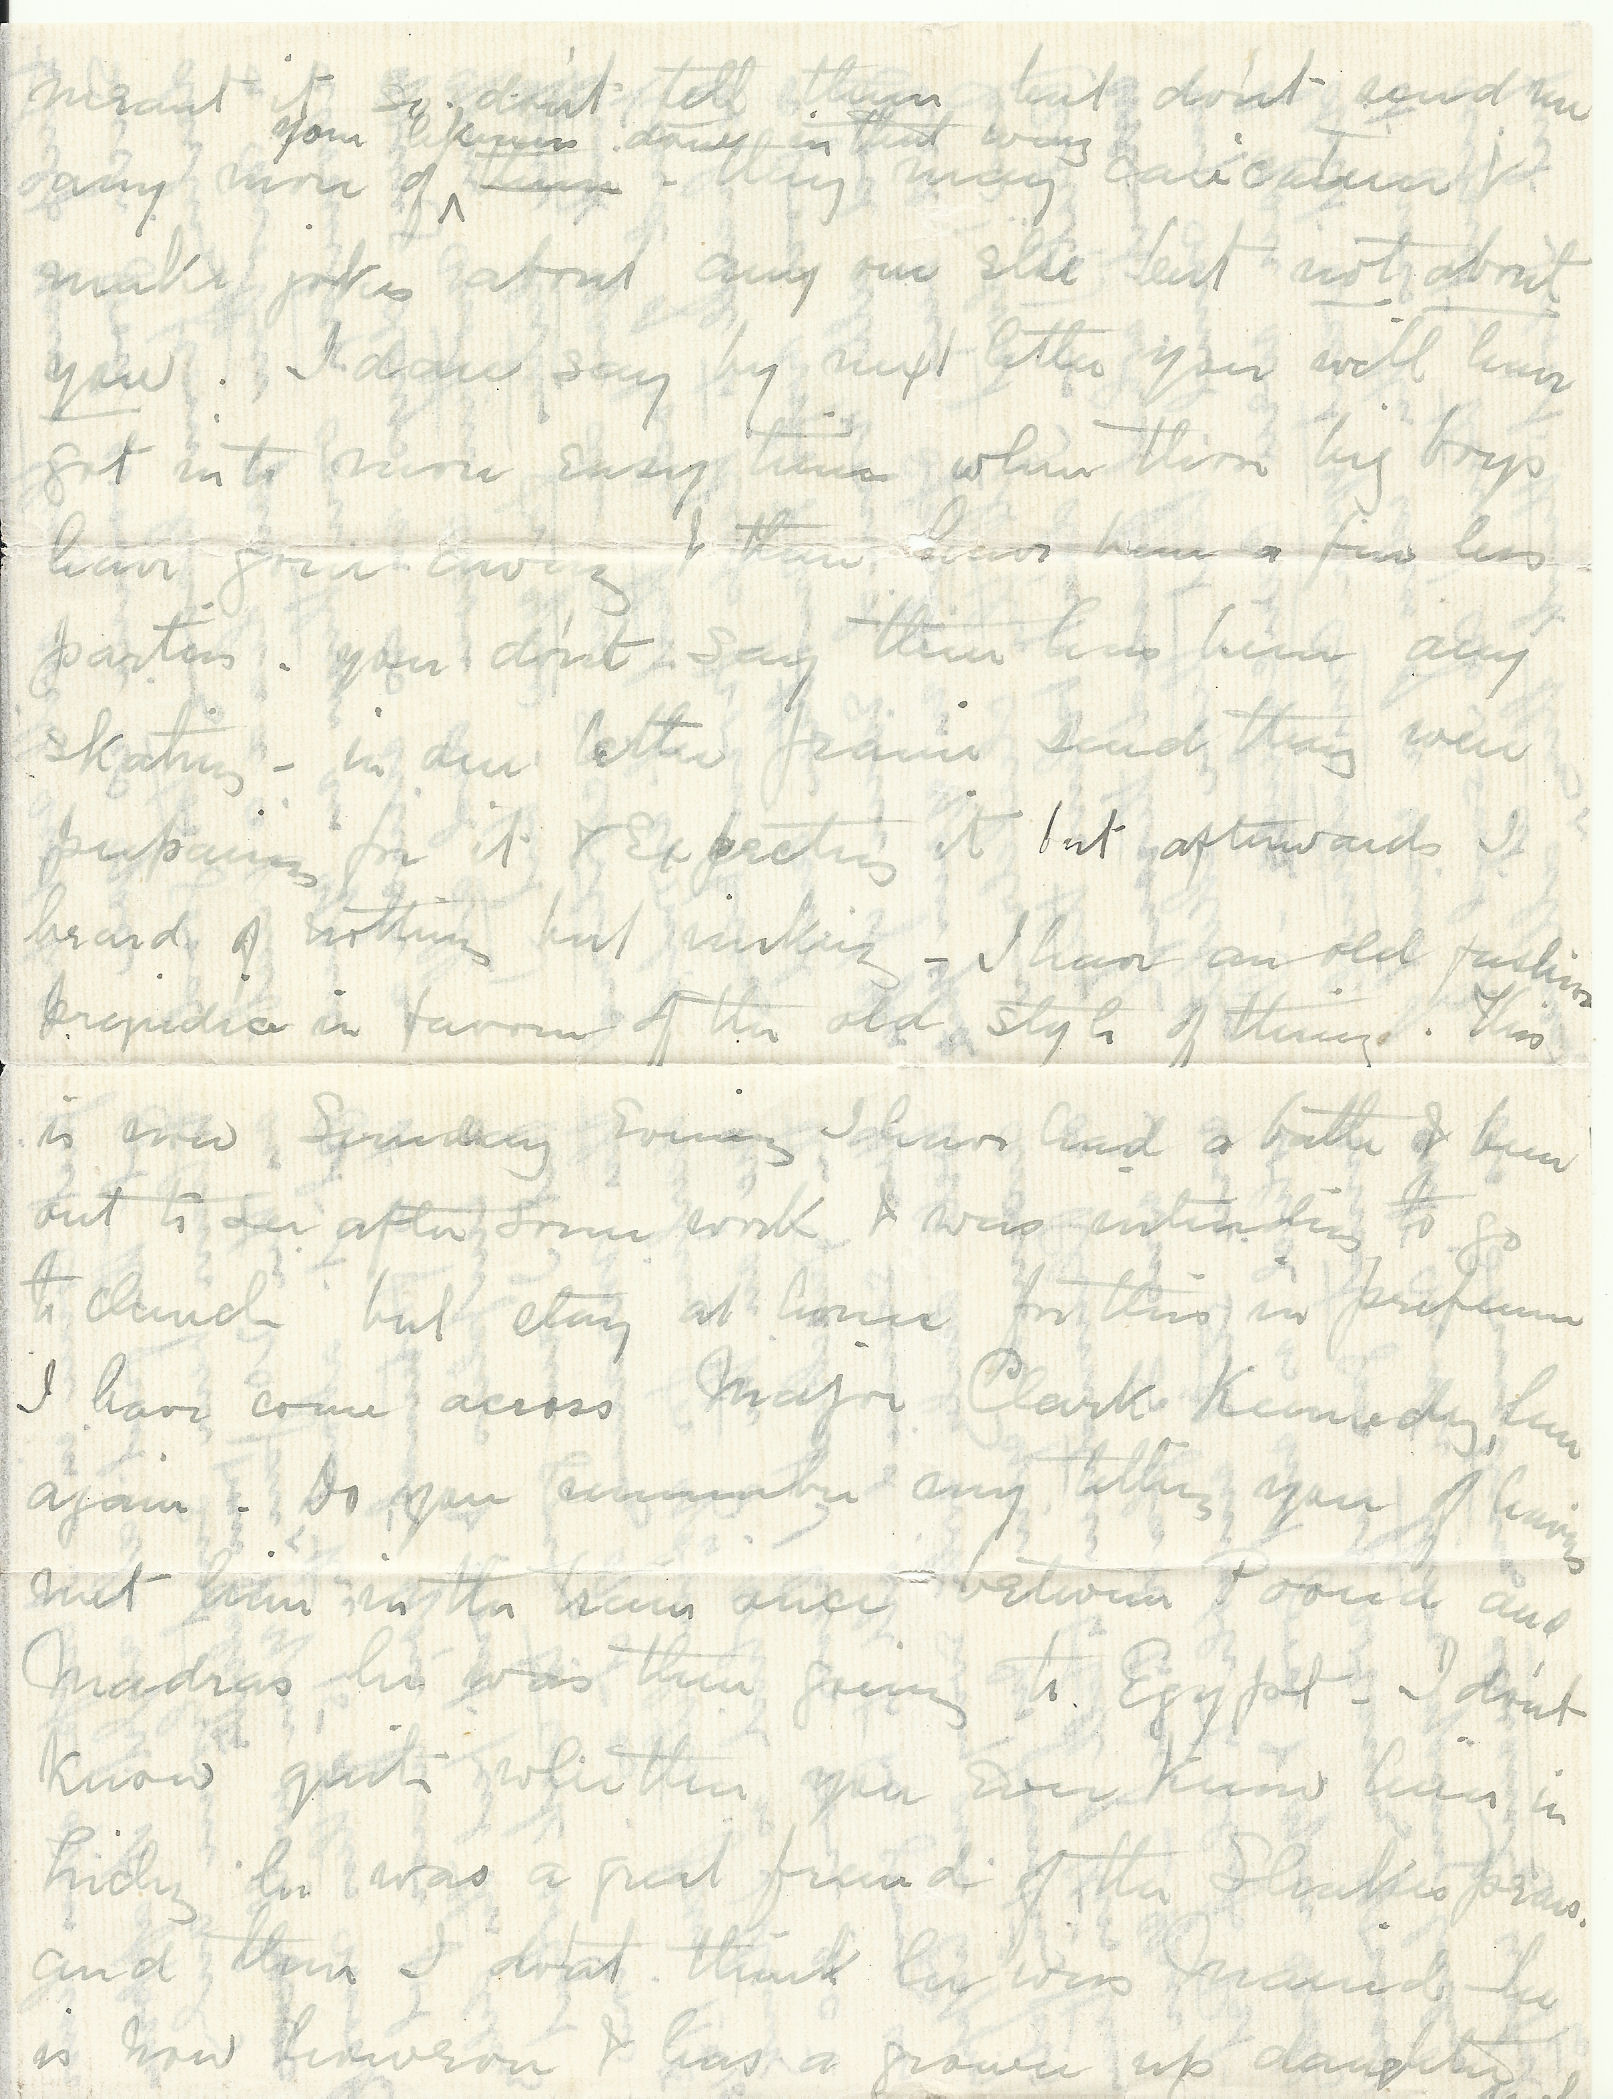 meant it so don't tell them but don't send me
your likeness done in that way
any more of ^ them - they may caricature &
make jokes about any one else but not about
you. I dare say by next letter you will have
got into more easy times when those big boys
have gone away & there have been a few less
parties. you don't say there has been any
skating - in one letter said they were
preparing for it & Expecting it but afterwards I
heard of nothing but rinking - I have an old fashion
prejudice in favour of the old style of thing. This
is now Sunday Evening I have had a bath & been
out to see after some work & was intending to go
to church but stay at home for this in preference
I have come across Major Clark Kennedy, here
again. Do you remember my telling you of having
met him in the train once between Poona and
Madras, he was then going to Egypt - I don't
know quite whether you Ever knew him in
he was a great friend of the Shakespears.
and then I don't think he was married he
is now however & has a grown up daughter